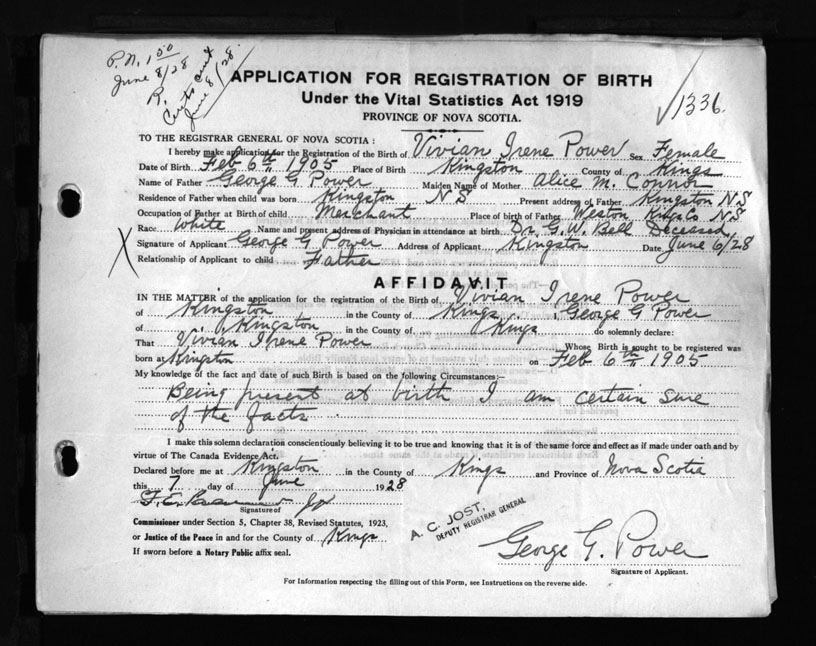 P.N. 1 50
June 8/28
R.
June 8/28.
APPLICATION FOR REGISTRATION OF BIRTH
Under the Vital Statistics Act 1919
PROVINCE OF NOVA SCOTIA.
1336.
TO THE REGISTRAR GENERAL OF NOVA SCOTIA:
I hereby make application for the Registration of the Birth of Vivian Irene Power Sex Female
Date of Birth Feb 6th 1905 Place of Birth Kingston County of Kings
Name of Father George G Power Maiden Name of Mother Alice M. Connor
Residence of Father when child was born Kingston N S Present address of Father Kingston N S
Occupation of Father at Birth of child Merchant Place of birth of Father Weston Kings Co N S
Race White Name and present address of Physician in attendance at birth Dr. G. W. Bell Deceased
Signature of Applicant George G Power Address of Applicant Kingston Date June 6/28
Relationship of Applicant to child Father
AFFIDAVIT
IN THE MATTER of the application for the registration of the Birth of Vivian Irene Power
of Kingston in the County of Kings I, George G Power
of Kingston in the County of Kings do solemnly declare:
That Vivian Irene Power Whose Birth is sought to be registered was
born at Kingston on Feb 6th 1905
My knowledge of the fact and date of such Birth is based on the following Circumstances:—
Being present at birth I am certain sure
of the facts
I make this solemn declaration conscientiously believing it to be true and knowing that it is of the same force and effect as if made under oath and by
virtue of The Canada Evidence Act.
Declared before me at Kingston in the County of Kings and Province of Nova Scotia
this 7 day of June 1928
Signature of
Commissioner under Section 5, Chapter 38, Revised Statutes, 1923,
or Justice of the Peace in and for the County of Kings
If sworn before a Notary Public affix seal.
A. C. JOST,
DEPUTY REGISTRAR GENERAL
George G. Power
Signature of Applicant.
For Information respecting the filling out of this Form, see Instructions on the reverse side.